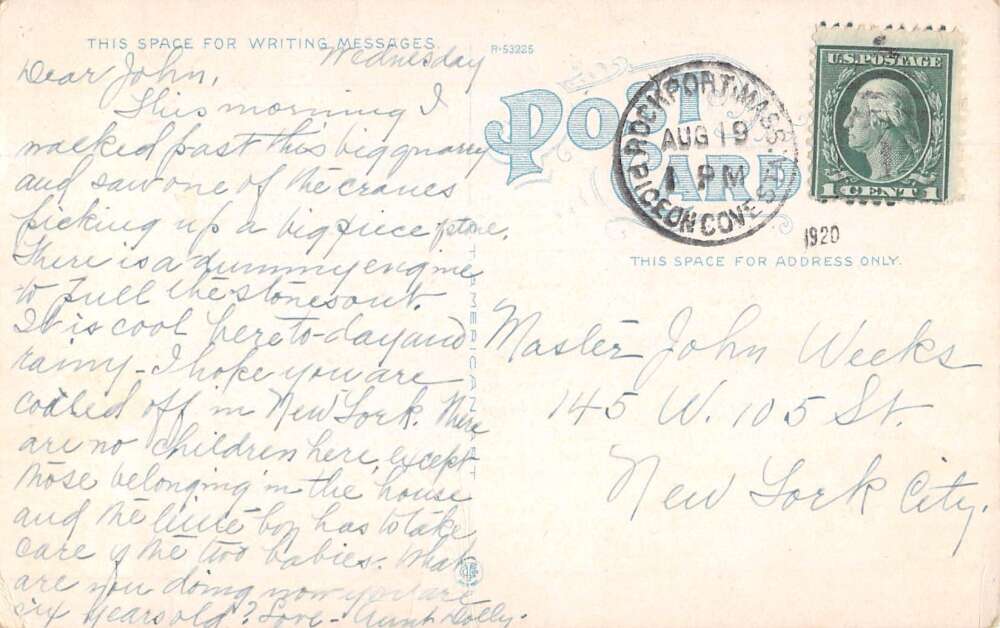 THIS SPACE FOR WRITING MESSAGES.
R-53225
Wednesday
Dear John,
This morning I
walked past this big quarry
and saw one of the cranes
picking up a big piece of stone.
There is a dummy engine
to pull the stones out.
It is cool here to-day and
rainy - I hope you are
cooled off in New York. There
are no children here, except
those belonging in the house
and the little boy has to take
care of the two babies. What
are you doing now you are
six years old? Love - Aunt Dolly.
POST
CARD
ROCKPORT, MASS.
AUG 19
1 PM
PIGEON COVE STA.
1920
U.S. POSTAGE
1 CENT 1
THIS SPACE FOR ADDRESS ONLY.
Master John Weeks
145 W. 105 St.
New York City.